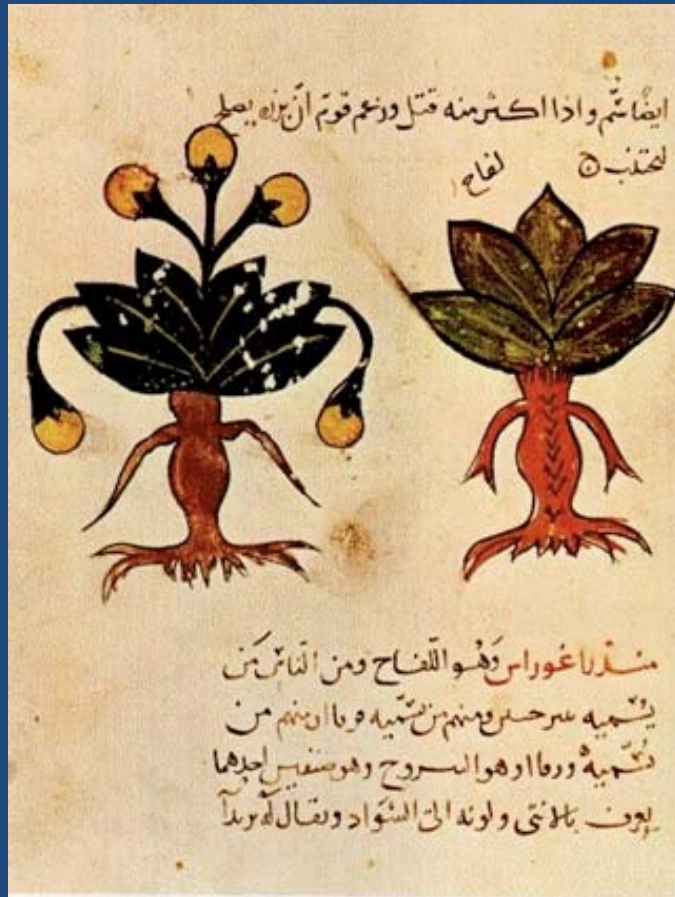 ايضا سم واذا اكثر منه قتل وزعم قوم ان بزره يصلح
لفاح
مندراغوراس وهو اللفاح ومن الناس من
يسميه ومنهم من يسميه ومنهم من
يسميه وهو اليبروح وهو صنفين احدهما
يعرف بالانثى ولونه الى السواد ويقال له